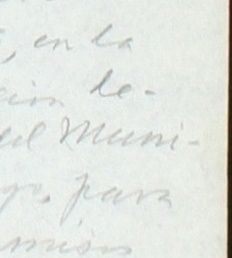 , en la
ción de-
del Muni-
go, para
misio